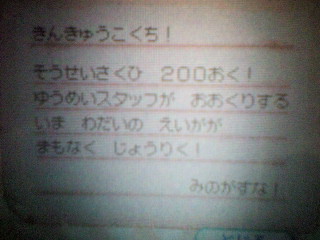 きんきゅうこくち！
そうせいさくひ　２００おく！
ゆうめいスタッフが　おおくりする
いま　わだいの　えいがが
まもなく　じょうりく！
みのがすな！